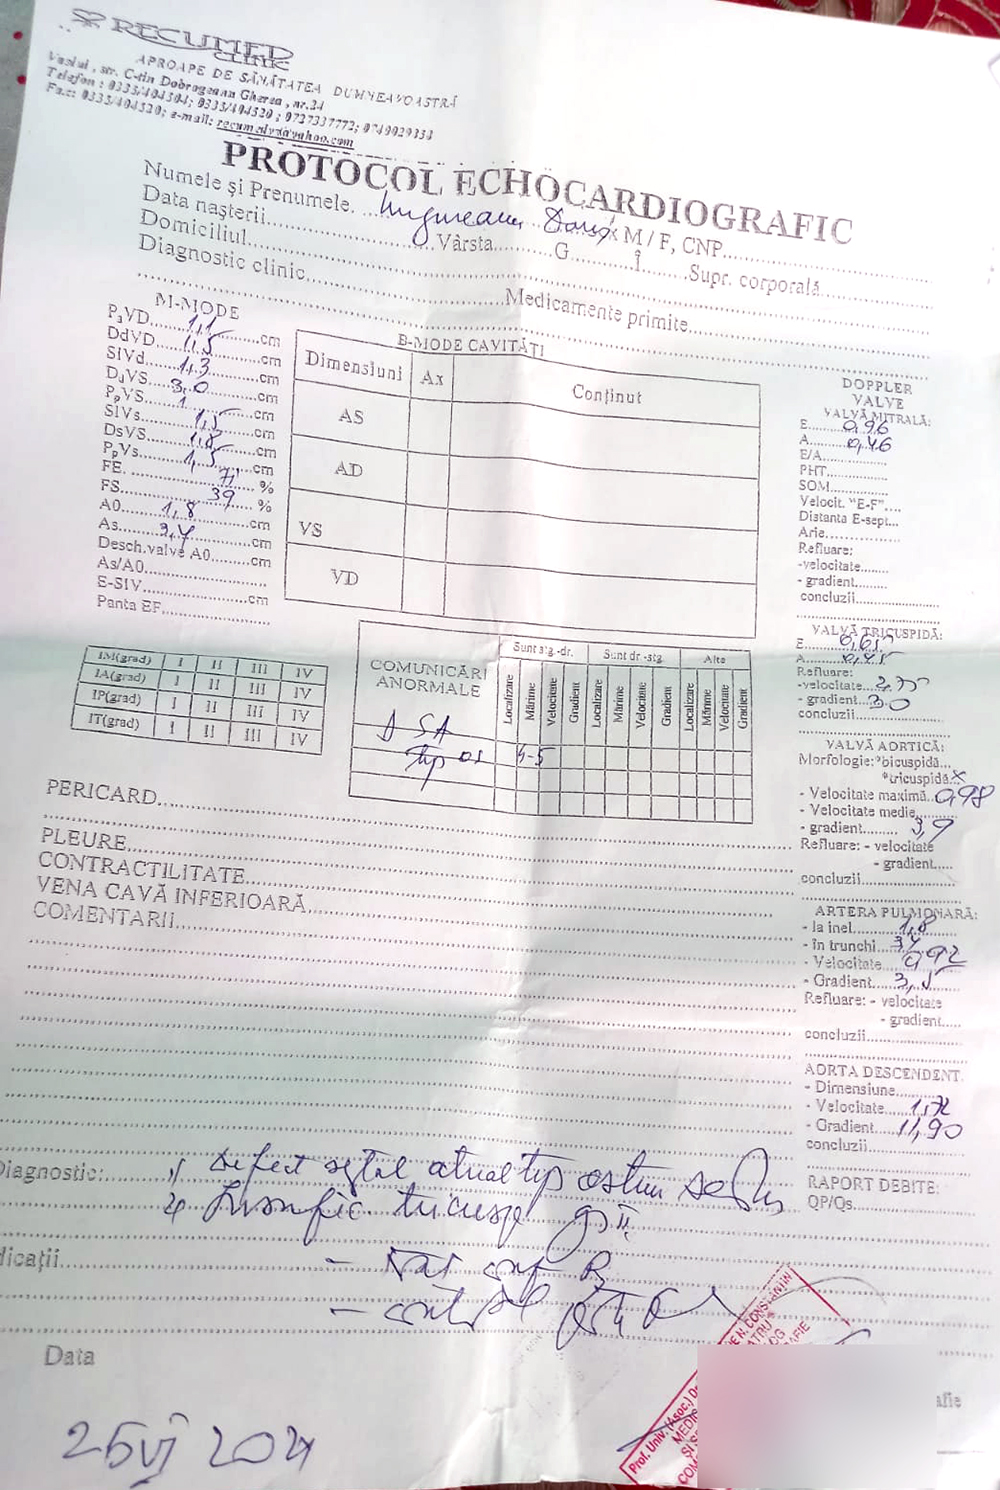 RECUMED
CLINIC
APROAPE DE SĂNĂTATEA DUMNEAVOASTRĂ
Vaslui, str. C-tin Dobrogeanu Gherea, nr.34
Telefon: 0335/404504; 0335/404520; 0727337772; 0749029354
Fax: 0335/404520; e-mail: recumedvs@yahoo.com
PROTOCOL ECHOCARDIOGRAFIC
Numele și Prenumele. M / F, CNP
Data nașterii Vârsta G Î Supr. corporală
Domiciliul
Diagnostic clinic Medicamente primite
M-MODE
PaVD 1,1 cm
DdVD 1,5 cm
SIVd 1,3 cm
DdVS 3,0 cm
PpVS 1 cm
SIVs 1,5 cm
DsVS 1,8 cm
PpVs 1,5 cm
FE. 71 %
FS 39 %
A0 1,8 cm
As 3,4 cm
Desch.valve A0 cm
As/A0
E-SIV cm
Panta EF
B-MODE CAVITĂȚI
Dimensiuni Ax Conținut
AS
AD
VS
VD
DOPPLER
VALVE
VALVĂ MITRALĂ:
E 0,96
A 0,46
E/A
PHT
SOM
Velocit. "E-F"
Distanta E-sept
Arie
Refluare:
-velocitate
- gradient
concluzii
VALVĂ TRICUSPIDĂ:
E 0,65
A 0,45
Refluare:
-velocitate 2,75
- gradient 30
concluzii
VALVĂ AORTICĂ:
Morfologie:*bicuspidă
*tricuspidă x
- Velocitate maximă 0,98
- Velocitate medie
- gradient 3,9
Refluare: - velocitate
- gradient
concluzii
ARTERA PULMONARĂ:
- la inel 1,8
- în trunchi
- Velocitate 0,92
- Gradient 3,5
Refluare: - velocitate
- gradient
concluzii
AORTA DESCENDENT.
- Dimensiune
- Velocitate 1,72
- Gradient 11,90
concluzii
RAPORT DEBITE:
QP/Qs
IM(grad) I II III IV
IA(grad) I II III IV
IP(grad) I II III IV
IT(grad) I II III IV
COMUNICĂRI ANORMALE Sunt stg.-dr. Sunt dr.-stg. Alte
Localizare Mărime Velocitate Gradient Localizare Mărime Velocitate Gradient Localizare Mărime Velocitate Gradient
DSA
tip os 4-5
PERICARD
PLEURE
CONTRACTILITATE
VENA CAVĂ INFERIOARĂ
COMENTARII
Diagnostic: 1) Defect septal atrial tip ostium
2) Insufic. tricusp gr II
dicații
Data
25 VI 2021
Prof. Univ. (Asoc.) D